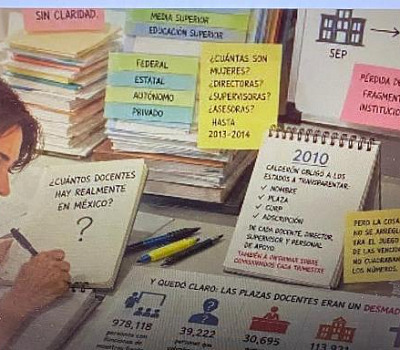 SIN CLARIDAD.
MEDIA SUPERIOR
EDUCACIÓN SUPERIOR
FEDERAL
ESTATAL
AUTÓNOMO
PRIVADO
¿CUÁNTAS SON
MUJERES?
¿DIRECTORAS?
¿SUPERVISORAS?
¿ASESORAS?
HASTA
2013-2014
SEP
PÉRDIDA DE
FRAGMENT
INSTITUCIO
¿CUÁNTOS DOCENTES
HAY REALMENTE
EN MÉXICO?
?
2010
CALDERÓN OBLIGÓ A LOS
ESTADOS A TRANSPARENTAR:
✓ NOMBRE
✓ PLAZA
✓ CURP
✓ ADSCRIPCIÓN
DE CADA DOCENTE, DIRECTOR,
SUPERVISOR Y PERSONAL
DE APOYO.
TAMBIÉN A INFORMAR SOBRE
COMISIONADOS CADA TRIMESTRE
PERO LA COSA
NO SE ARREGL
ERA EL JUEGO
DE LAS VENCID
NO CUADRABAN
LOS NÚMEROS.
Y QUEDÓ CLARO: LAS PLAZAS DOCENTES ERAN UN DESMAD
978,118
39,222
30,695
113,921
personas con